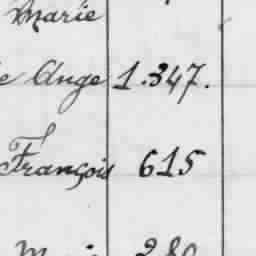 Marie
e Ange 1.347.
François 615
280